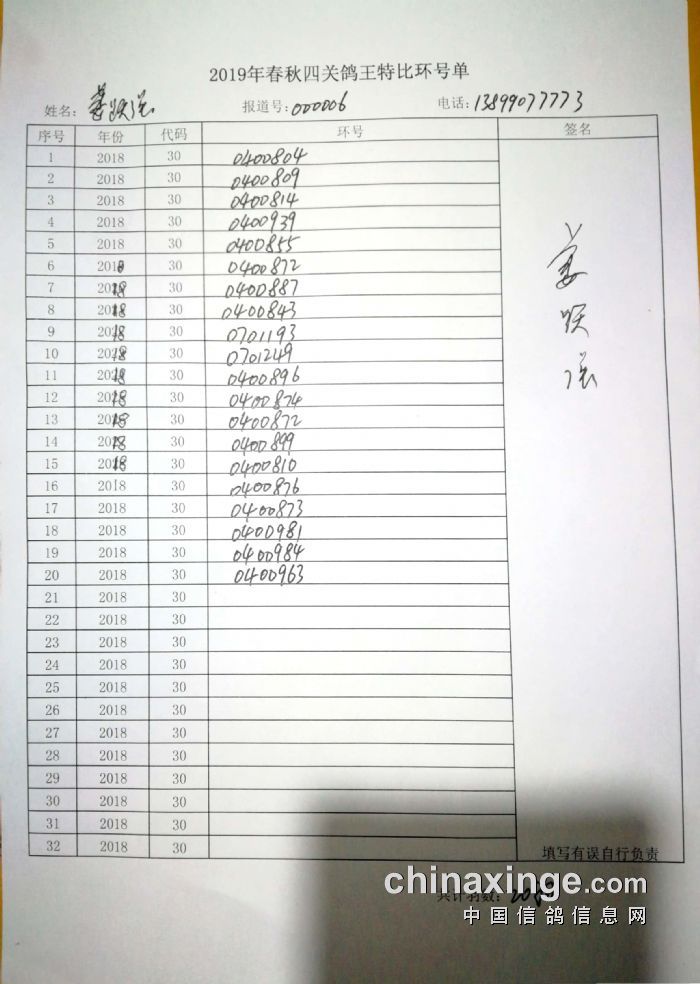 2019年春秋四关鸽王特比环号单
姓名：姜跃滨 报道号：000006 电话：13899077773
序号 年份 代码 环号 签名
1 2018 30 0400804
2 2018 30 0400809
3 2018 30 0400814
4 2018 30 0400939
5 2018 30 0400855
6 2018 30 0400872
7 2018 30 0400887
8 2018 30 0400843
9 2018 30 0701193
10 2018 30 0701249
11 2018 30 0400896
12 2018 30 0400874
13 2018 30 0400872
14 2018 30 0400899
15 2018 30 0400810
16 2018 30 0400876
17 2018 30 0400873
18 2018 30 0400981
19 2018 30 0400984
20 2018 30 0400963
21 2018 30
22 2018 30
23 2018 30
24 2018 30
25 2018 30
26 2018 30
27 2018 30
28 2018 30
29 2018 30
30 2018 30
31 2018 30
32 2018 30
姜
跃
填写有误自行负责
共计羽数：
chinaxinge.com
中国信鸽信息网